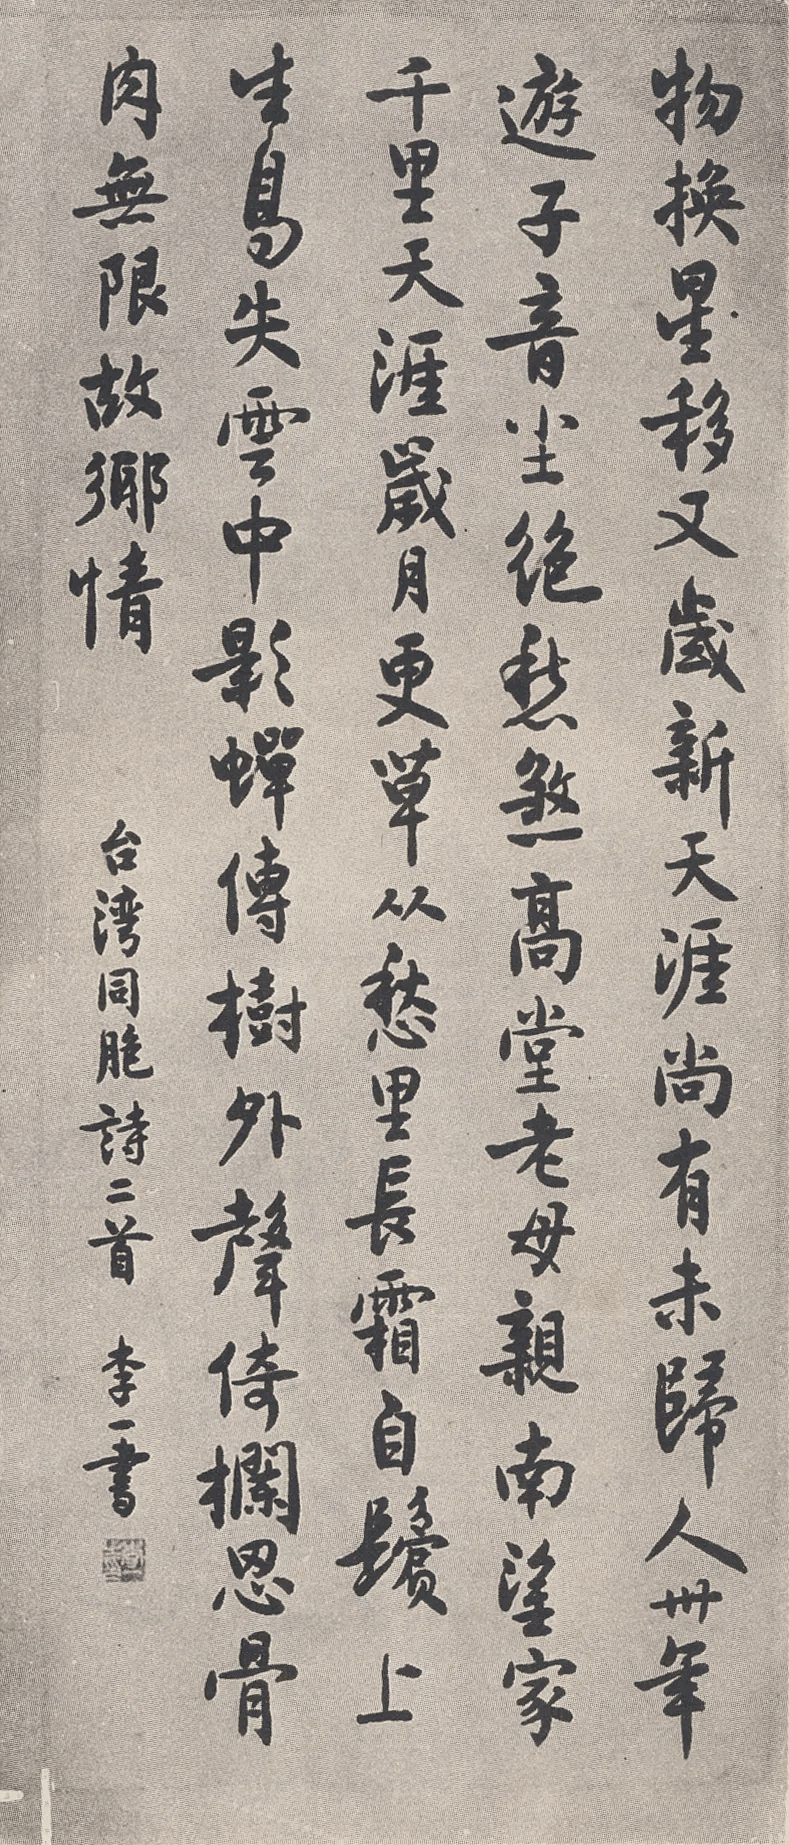 物換星移又歲新天涯尚有未歸人卅年
遊子音尘絕愁煞高堂老母親南望家
千里天涯歲月更草从愁里長霜自鬢上
生鳥失雲中影蟬傳樹外聲倚欄思骨
肉無限故鄉情
台湾同胞詩二首 李一書